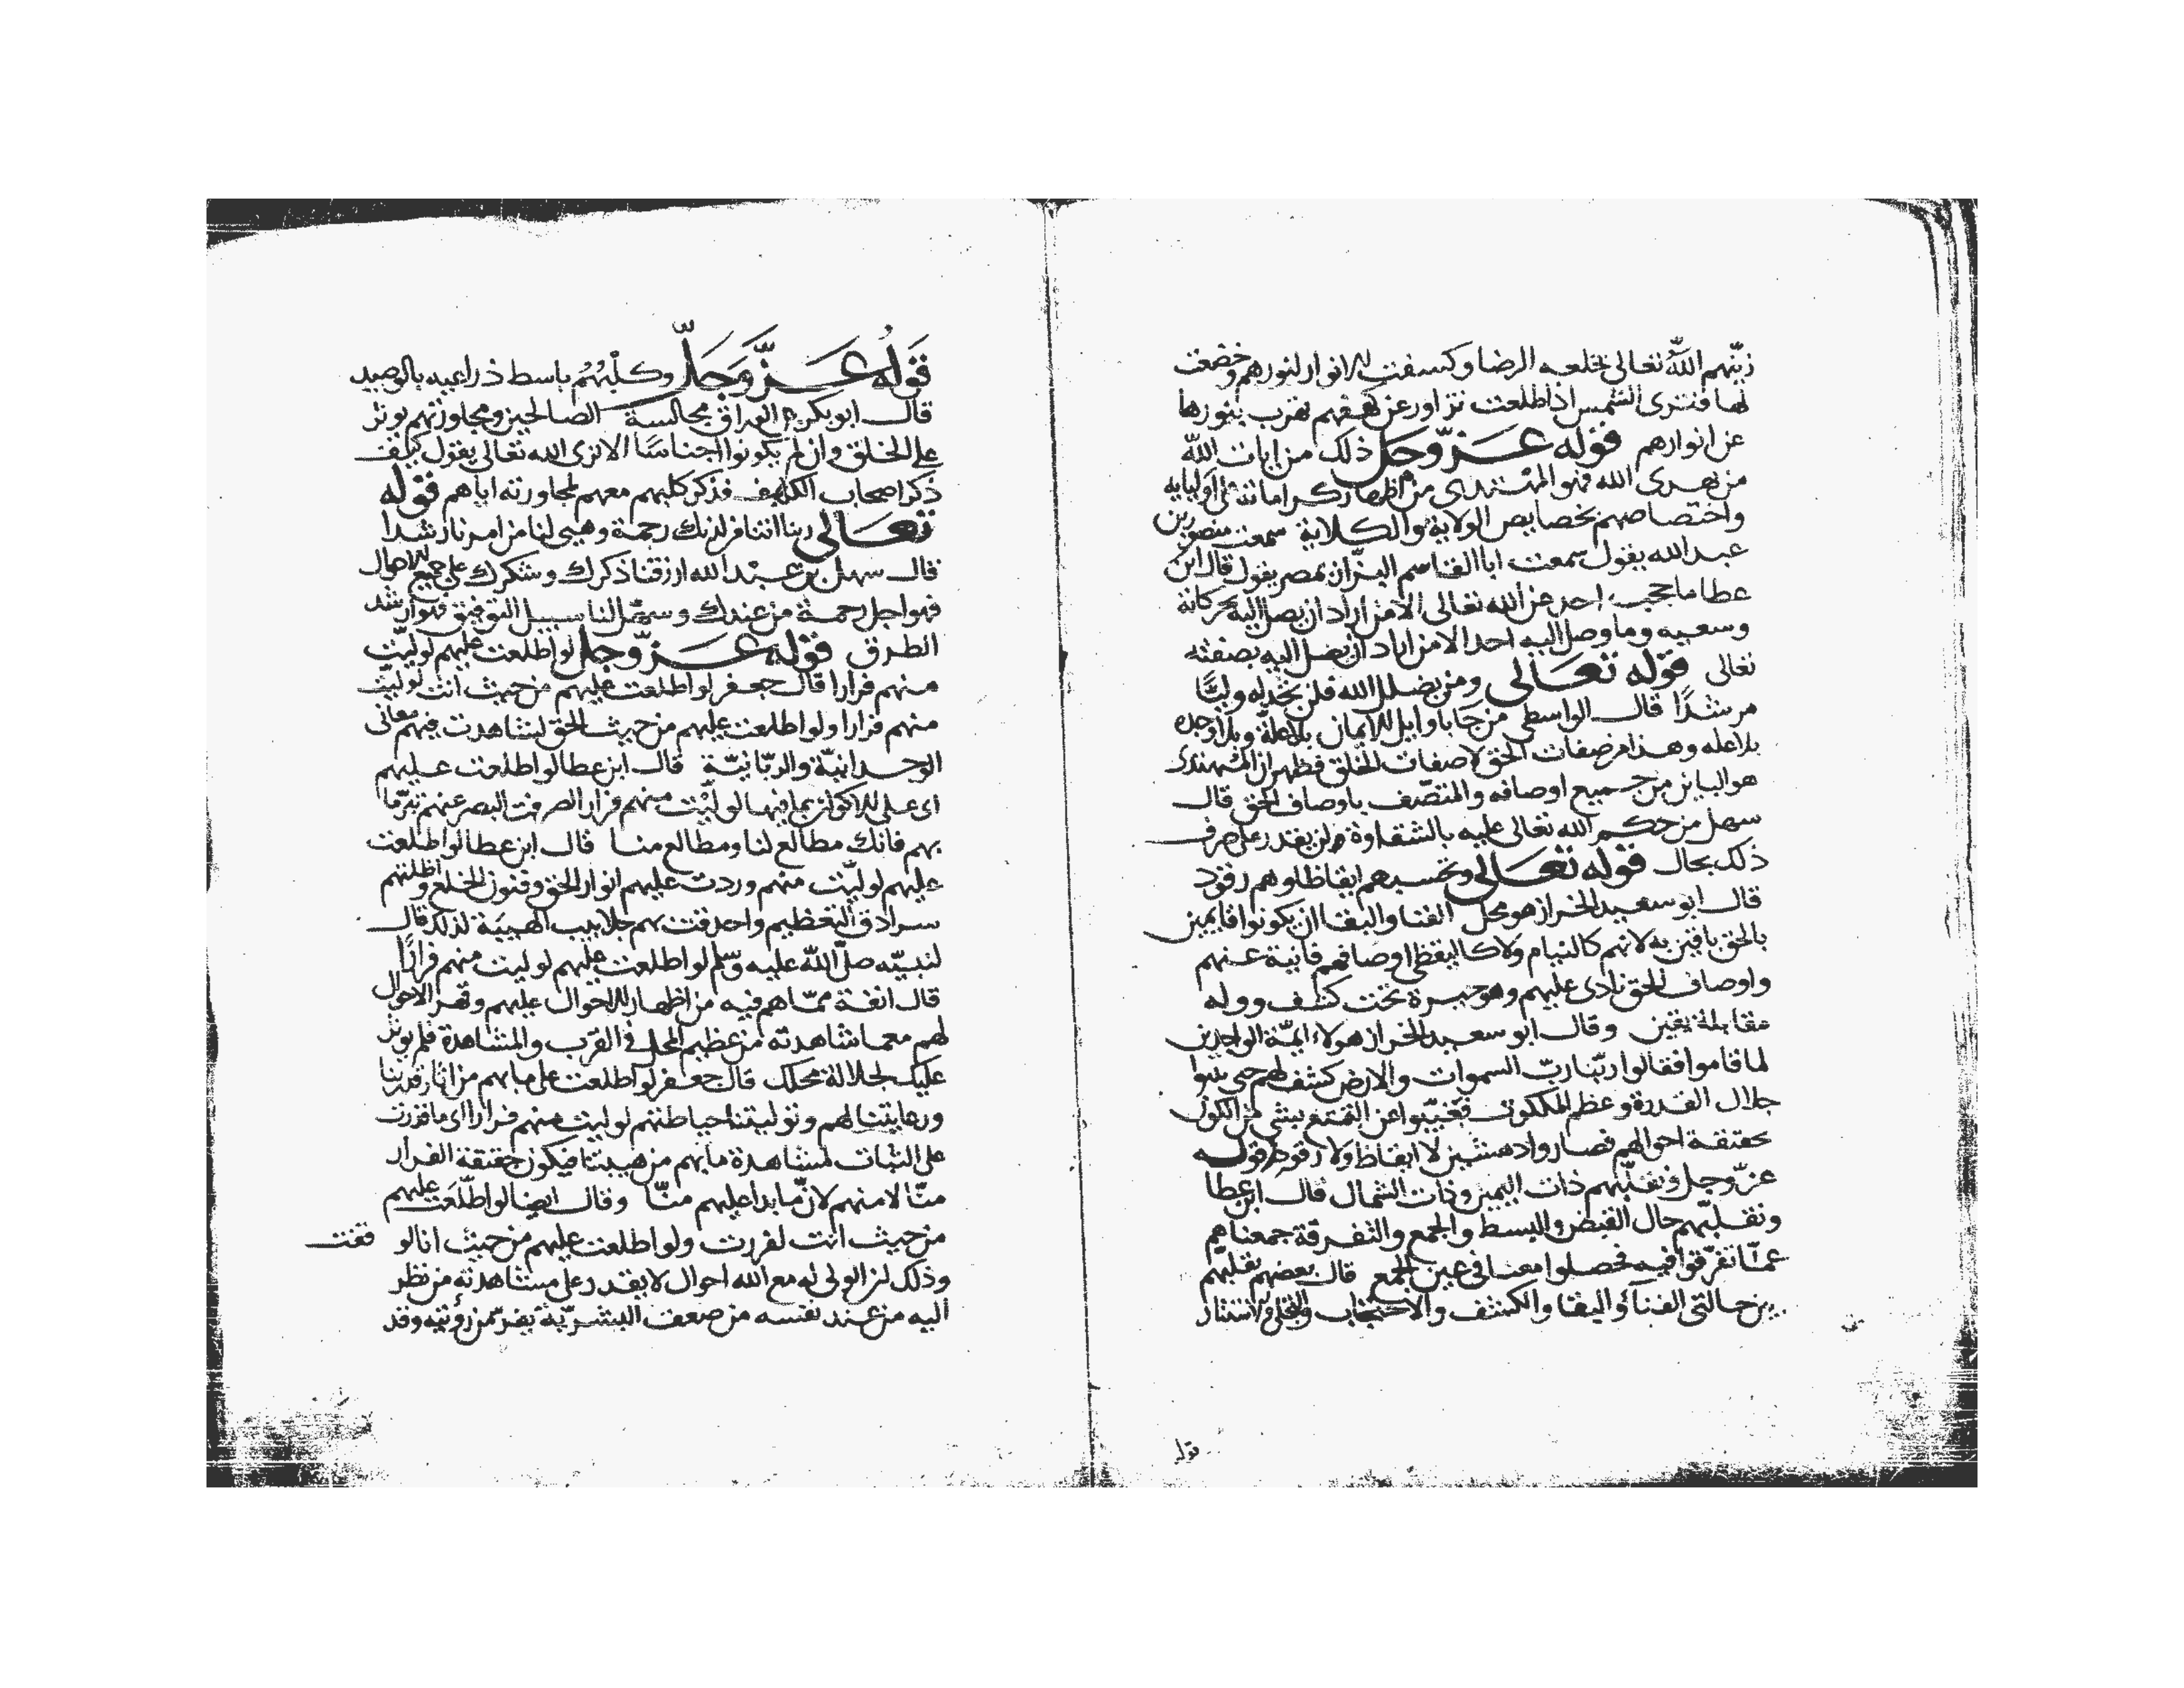 زينهم الله تعالى بخلعه الرضا وكسفت الانوار لنورهم وخضعت
لها فترى الشمس اذا طلعت تزاور عن كهفهم تغرب بنورها
عن انوارهم قوله عز وجل ذلك من ايات الله
من يهدى الله فهو المهتدى من اظهار كراماته على اوليايه
واختصاصهم بخصايص الولاية والكلاية سمعت منصور بن
عبد الله يقول سمعت ابا القاسم البزاز بمصر يقول قال ابن
عطا ما حجب احد عن الله تعالى الا من اراد ان يصل اليه بحركاته
وسعيه وما وصل اليه احد الا من اراد ان يصل اليه بصفته
تعالى قوله تعالى ومن يضلل الله فلن تجد له وليا
مرشدا قال الواسطى من جا باوايل الايمان بلا علة وبلا وجد
بلا عله وهذا من صفات الحق لا صفات الخلق فظهر ان المهتدى
هو الباين من جميع اوصافه والمتصف باوصاف الحق قال
سهل من حكم الله تعالى عليه بالشقاوة لن يقدر على صرف
ذلك بحال قوله تعالى وتحسبهم ايقاظا وهم رقود
قال ابو سعيد الخراز هو محل الفنا والبقا ان يكونوا فايمين
بالحق باقين به لانهم كالنيام ولا كاليقظى اوصافهم فانية عنهم
واوصاف الحق نادى عليهم وهو حيرة تحت كشف ووله
مقابلة يقين وقال ابو سعيد الخراز هولاء ايمة الواجدين
لما قاموا فقالوا ربنا رب السموات والارض كشف لهم حتى تبينوا
جلال القدرة وعظم الملكوت فغيبوا عن التمتع بشى من الكون
حقيقة احوالهم فصاروا دهشين لا ايقاظ ولا رقود قوله
عز وجل ونقلبهم ذات اليمين وذات الشمال قال ابن عطا
ونقلبهم حال القبض والبسط والجمع والتفرقة جمعناهم
عما تفرقوا فيه فحصلوا معنا فى عين الجمع قال بعضهم نقلبهم
بين حالتى الفناء والبقا والكشف والاحتجاب والتجلى والاستتار
قوله
قوله عز وجل وكلبهم باسط ذراعيه بالوصيد
قال ابو بكر العراق مجالسة الصالحين ومجاورتهم يوثر
على الخلق وان لم يكونوا اجناسا الا ترى الله تعالى يقول كيف
ذكر اصحاب الكهف فذكر كلبهم معهم لمجاورته اياهم قوله
تعالى ربنا اتنا من لدنك رحمة وهيى لنا من امرنا رشدا
قال سهل بن عبد الله ارزقنا ذكرك وشكرك على جميع الاحوال
فهو اجل رحمة من عندك وسهل لنا سبيل التوفيق فهو ارشد
الطرق قوله عز وجل لو اطلعت عليهم لوليت
منهم فرارا قال جعفر لو اطلعت عليهم من حيث انت لوليت
منهم فرارا ولو اطلعت عليهم من حيث الحق لشاهدت فيهم معانى
الوحدانية والربانية قال ابن عطا لو اطلعت عليهم
اى على الاكوان بما فيها لوليت منهم فرارا الصرفت البصر عنهم تبرما
بهم فانك مطالع لنا ومطالع منا قال ابن عطا لو اطلعت
عليهم لوليت منهم وردت عليهم انوار الحق وفنون الخلع واظلتهم
سرادق التعظيم واحدقت بهم جلابيب الهيبة لذلك قال
لنبيه صلى الله عليه وسلم لو اطلعت عليهم لوليت منهم فرارا
قال انفة مما هم فيه من اظهار الاحوال عليهم وقهر الاحوال
لهم مع ما شاهدته من عظيم المحل فى القرب والمشاهدة فلم يوثر
عليك لجلالة محلك قال جعفر لو اطلعت على ما بهم من اثار قدرتنا
ورعايتنا لهم وتوليتنا حياطتهم لوليت منهم فرارا اى ما قدرت
على الثبات لمشاهدة ما بهم من هيبتنا فيكون حقيقة الفرار
منا لا منهم لان ما بدا عليهم منا وقال ايضا لو اطلعت عليهم
من حيث انت لفررت ولو اطلعت عليهم من حيث انا لوقفت
وذلك لان الولى له مع الله احوال لا يقدر على مشاهدته من نظر
اليه من عند نفسه من ضعف البشرية يفر من رؤيته وقد